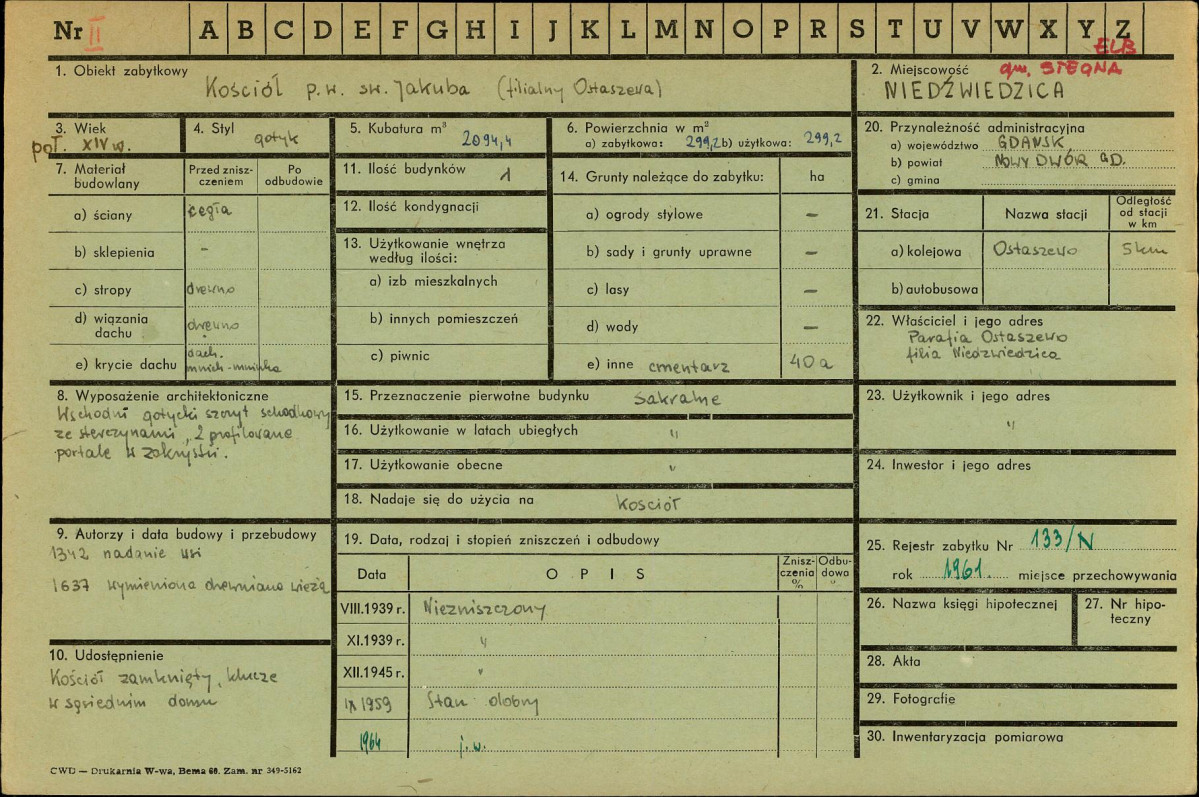 Nr II A B C D E F G H I J K L M N O P R S T U V W X Y Z
ELB
gm. STEGNA
1. Obiekt zabytkowy
Kościół p.w. św. Jakuba (filialny Ostaszewa)
2. Miejscowość
NIEDŹWIEDZICA
3. Wiek
poł. XIV w.
4. Styl
gotyk
5. Kubatura m³ 2094,4
6. Powierzchnia w m²
a) zabytkowa: 299,2 b) użytkowa: 299,2
7. Materiał budowlany
Przed zniszczeniem
Po odbudowie
a) ściany cegła
b) sklepienia -
c) stropy drewno
d) wiązania dachu drewno
e) krycie dachu dach. mnich-mniszka
8. Wyposażenie architektoniczne
Wschodni gotycki szczyt schodkowy
ze sterczynami, 2 profilowane
portale w zakrystii.
9. Autorzy i data budowy i przebudowy
1342 nadanie wsi
1637 wymieniona drewniana wieża
10. Udostępnienie
Kościół zamknięty, klucze
w sąsiednim domu
11. Ilość budynków 1
12. Ilość kondygnacji
13. Użytkowanie wnętrza
według ilości:
a) izb mieszkalnych
b) innych pomieszczeń
c) piwnic
14. Grunty należące do zabytku: ha
a) ogrody stylowe —
b) sady i grunty uprawne —
c) lasy —
d) wody —
e) inne cmentarz 40a
15. Przeznaczenie pierwotne budynku sakralne
16. Użytkowanie w latach ubiegłych "
17. Użytkowanie obecne "
18. Nadaje się do użycia na kościół
19. Data, rodzaj i stopień zniszczeń i odbudowy
Data OPIS Zniszczenia % Odbudowa "
VIII.1939 r. Niezniszczony
XI.1939 r. "
XII.1945 r. "
IX 1959 Stan dobry
1964 j.w.
20. Przynależność administracyjna
a) województwo GDAŃSK
b) powiat NOWY DWÓR GD.
c) gmina
21. Stacja Nazwa stacji Odległość od stacji w km
a) kolejowa Ostaszewo 5 km
b) autobusowa
22. Właściciel i jego adres
Parafia Ostaszewo
filia Niedźwiedzica
23. Użytkownik i jego adres
"
24. Inwestor i jego adres
25. Rejestr zabytku Nr 133/N
rok 1961. miejsce przechowywania
26. Nazwa księgi hipotecznej
27. Nr hipoteczny
28. Akta
29. Fotografie
30. Inwentaryzacja pomiarowa
CWD — Drukarnia W-wa, Bema 60. Zam. nr 349-5162